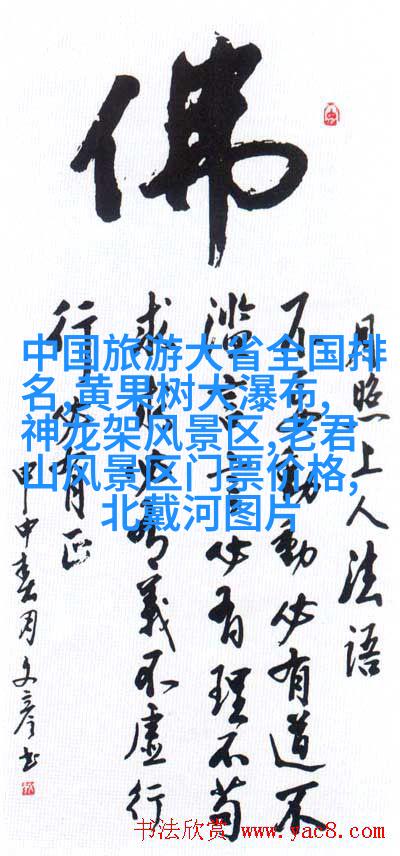 佛
月照上人法语
不妄動動必有道不
滥言言必有理不苟
求求必有義不虚行
行必有正
甲申春月文彦书
中国旅游大省全国排
名,黄果树大瀑布,
神龙架风景区,老君
山风景区门票价格,
北戴河图片
书法欣赏 www.yac8.com